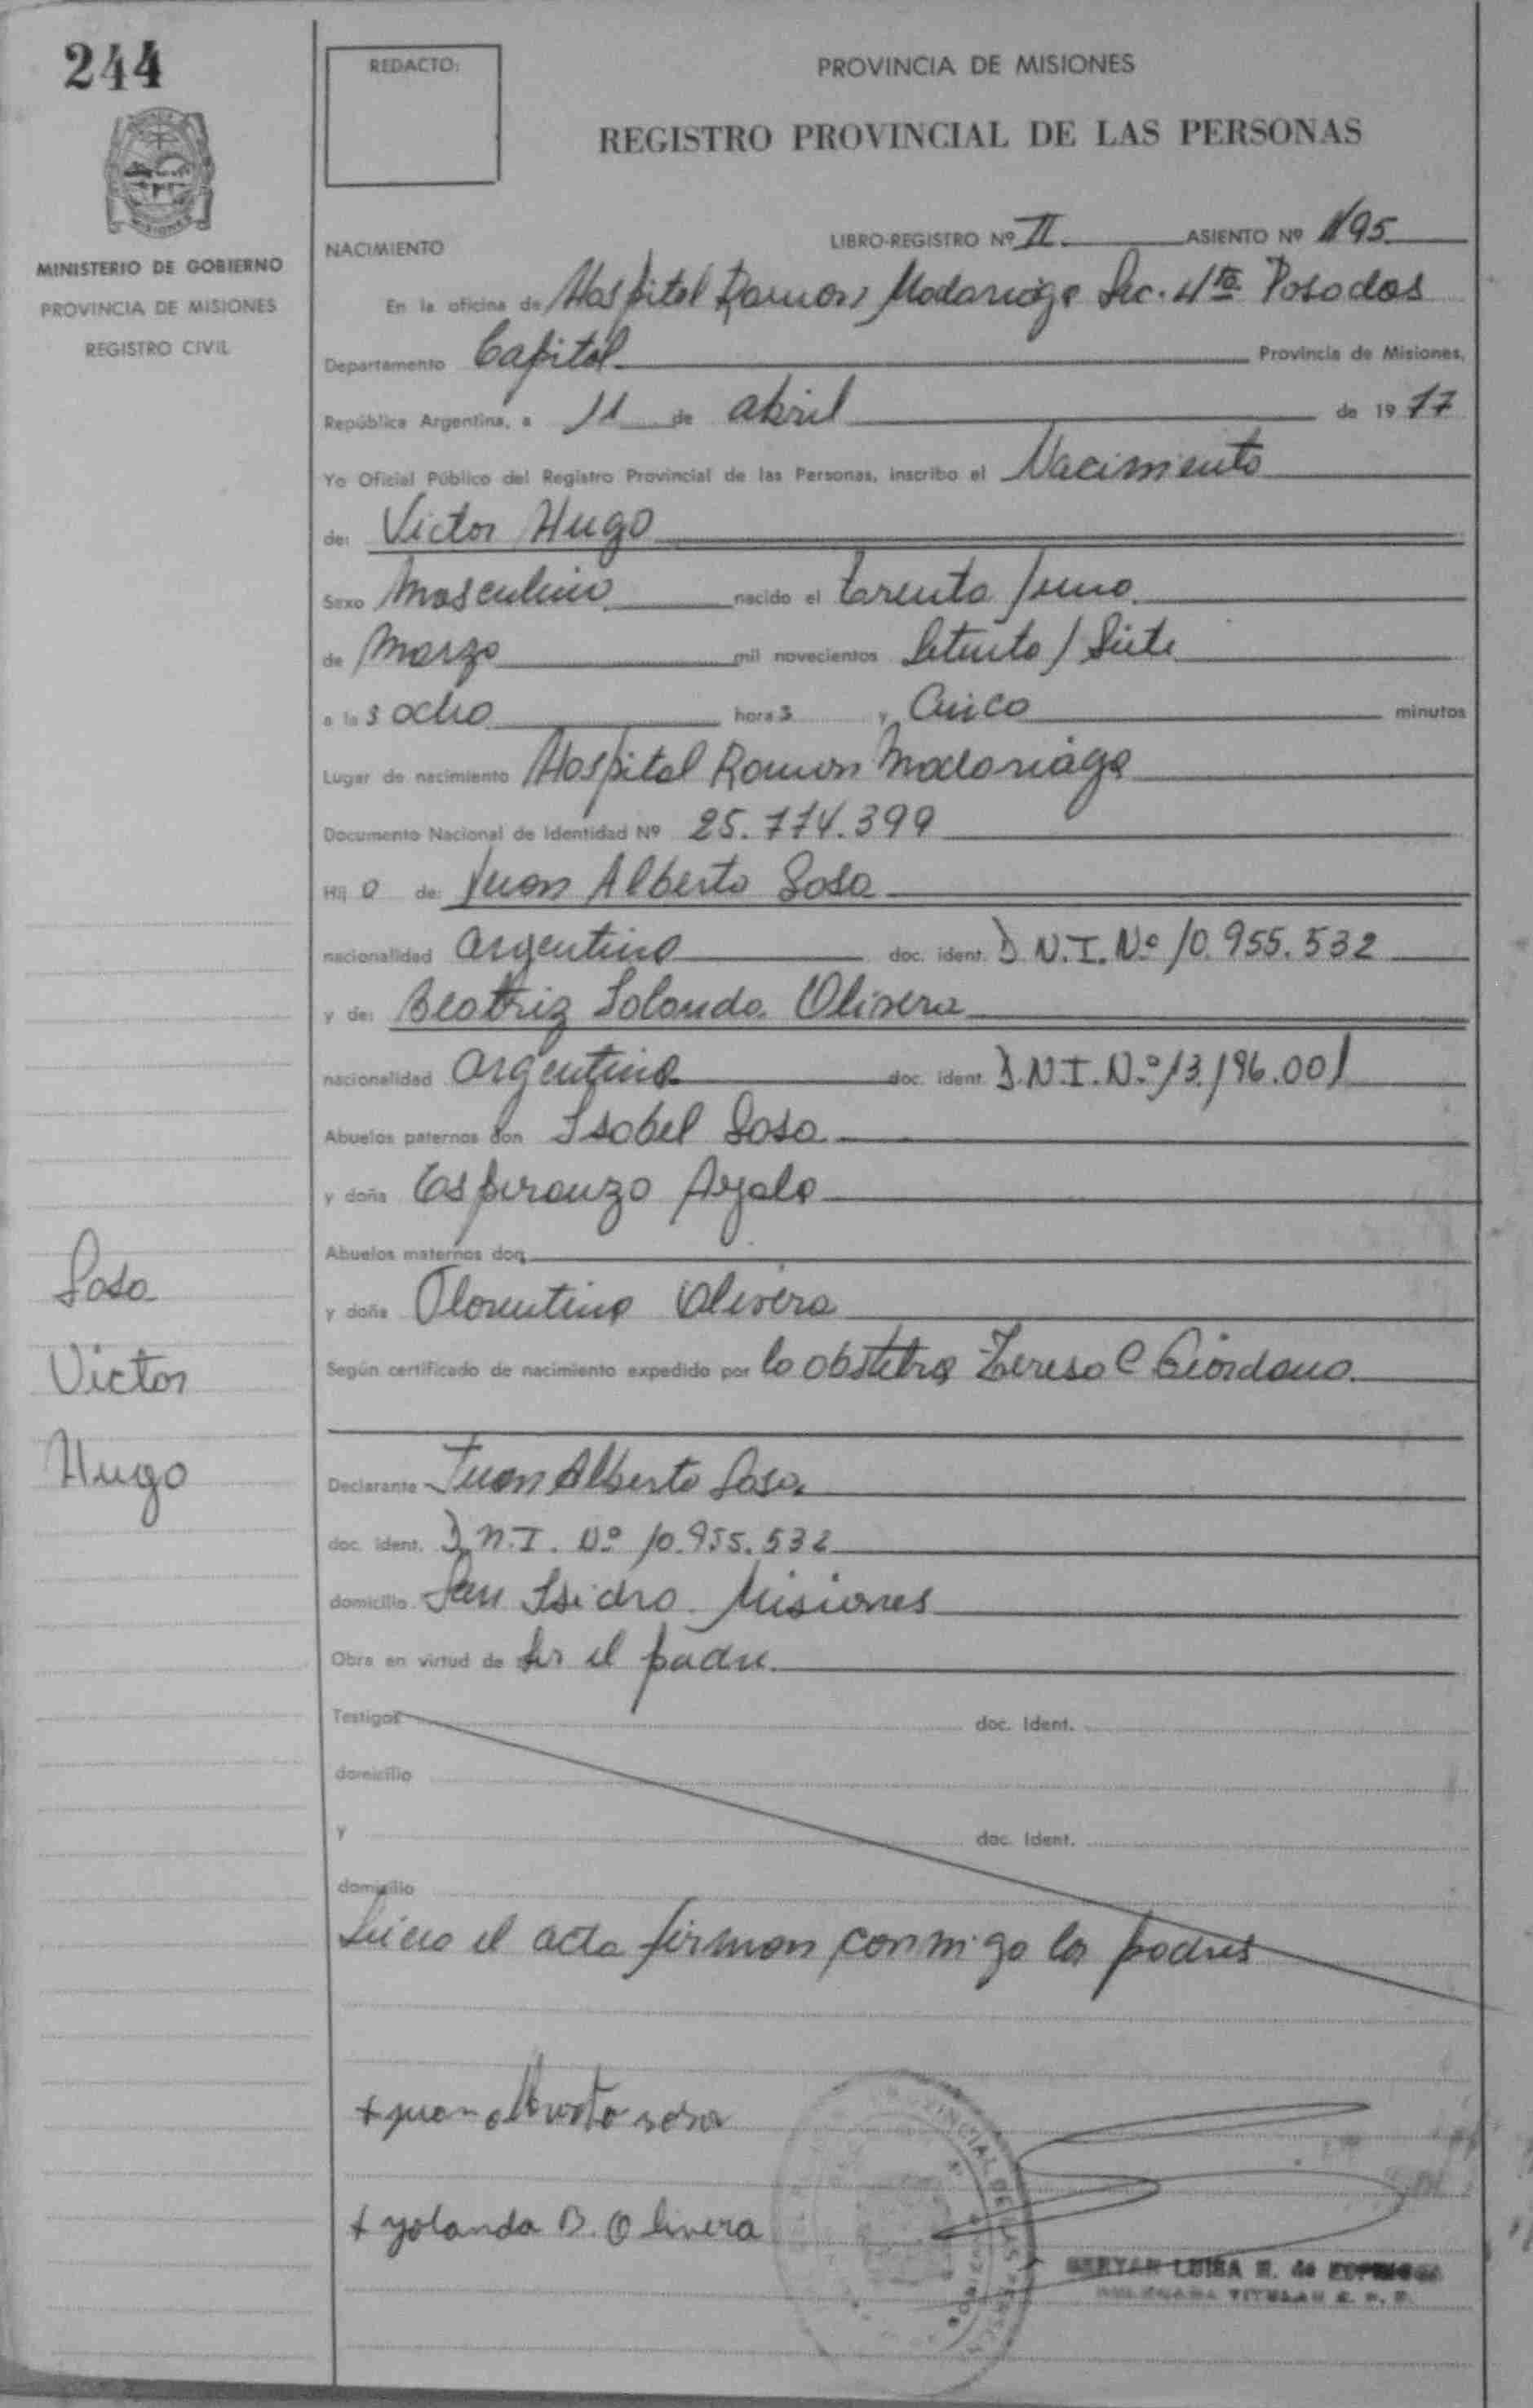 244
MINISTERIO DE GOBIERNO
PROVINCIA DE MISIONES
REGISTRO CIVIL
REDACTO:
PROVINCIA DE MISIONES
REGISTRO PROVINCIAL DE LAS PERSONAS
NACIMIENTO LIBRO-REGISTRO Nº II ASIENTO Nº 1195
En la oficina de Hospital Ramon Madariaga Sec. 4ta Posadas
Departamento Capital Provincia de Misiones,
República Argentina, a 11 de abril de 1977
Yo Oficial Público del Registro Provincial de las Personas, inscribo el Nacimiento
de: Victor Hugo
Sexo Masculino nacido el treinta y uno
de Marzo mil novecientos Setenta y Siete
a las ocho horas y Cinco minutos
Lugar de nacimiento Hospital Ramon Madariaga
Documento Nacional de Identidad Nº 25.774.399
Hijo de: Juan Alberto Sosa
nacionalidad argentino doc. ident. D.N.I. Nº 10.955.532
y de: Beatriz Iolanda Olivera
nacionalidad argentina doc. ident. D.N.I. Nº 13.196.001
Abuelos paternos don Isabel Sosa
y doña Esperanza Ayala
Abuelos maternos don
y doña Florentina Olivera
Según certificado de nacimiento expedido por la obstetra Teresa C Giordano
Declarante Juan Alberto Sosa
doc. ident. D.N.I. Nº 10.955.532
domicilio San Isidro Misiones
Obra en virtud de ser el padre
Testigos doc. Ident.
domicilio
y doc. Ident.
domicilio
el acta firman conmigo los padres
Sosa
Victor
Hugo
+ juan alberto sosa
+ yolanda B. Olivera
PROVINCIAL DE LAS
LUISA E. de
TITULAR